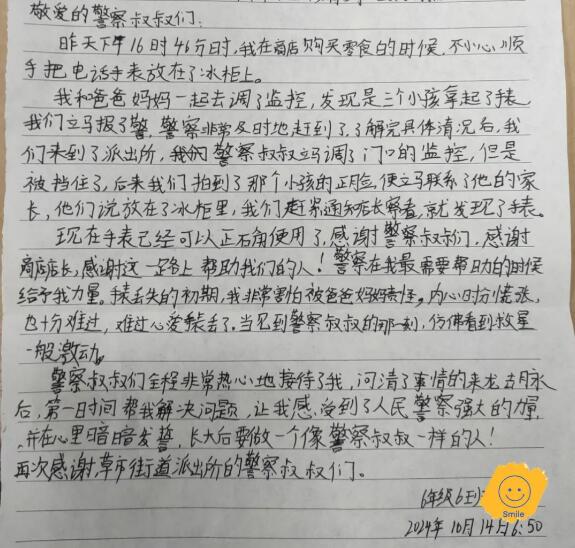 敬爱的警察叔叔们:
昨天下午16时46分时,我在商店购买零食的时候,不小心顺
手把电话手表放在了冰柜上。
我和爸爸妈妈一起去调了监控,发现是三个小孩拿起了手表
我们立马报了警,警察非常及时地赶到了,了解完具体情况后,我
们来到了派出所,警察叔叔立马调了门口的监控,但是
被挡住了,后来我们拍到了那个小孩的正脸,便立马联系了他的家
长,他们说放在了冰柜里,我们赶紧通知店长察看,就发现了手表。
现在手表已经可以正确使用了,感谢警察叔叔们,感谢
商店店长,感谢这一路上帮助我们的人!警察在我最需要帮助的时候
给予我力量。手表丢失的初期,我非常害怕被爸爸妈妈责怪。内心时分慌张,
也十分难过,难过心爱手表丢了。当见到警察叔叔的那一刻,仿佛看到救星
一般激动。
警察叔叔们全程非常热心地接待了我,问清了事情的来龙去脉
后,第一时间帮我解决问题,让我感受到了人民警察强大的力量,
并在心里暗暗发誓,长大后要做一个像警察叔叔一样的人!
再次感谢,草市街道派出所的警察叔叔们。
6年级6班
Smile
2024年10月14日6:50